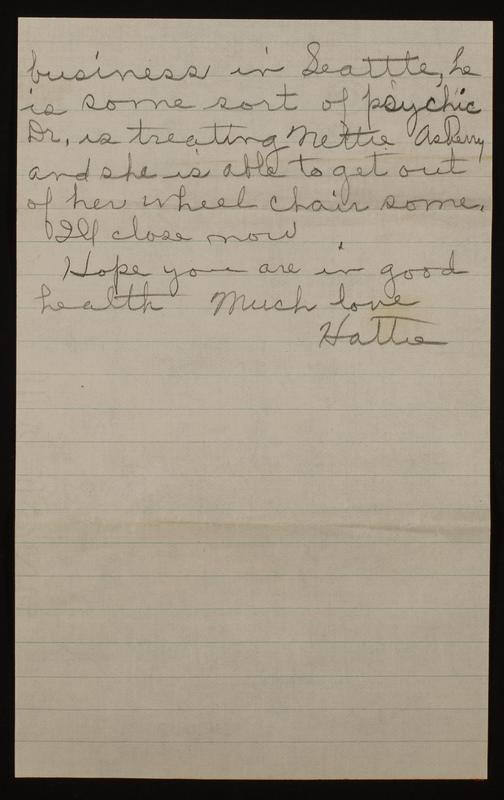 business in Seattle, he
is some sort of psychic
Dr, is treating Nettie Asberry
and she is able to get out
of her wheel chair some.
I'll close now
Hope you are in good
health Much love
Hattie